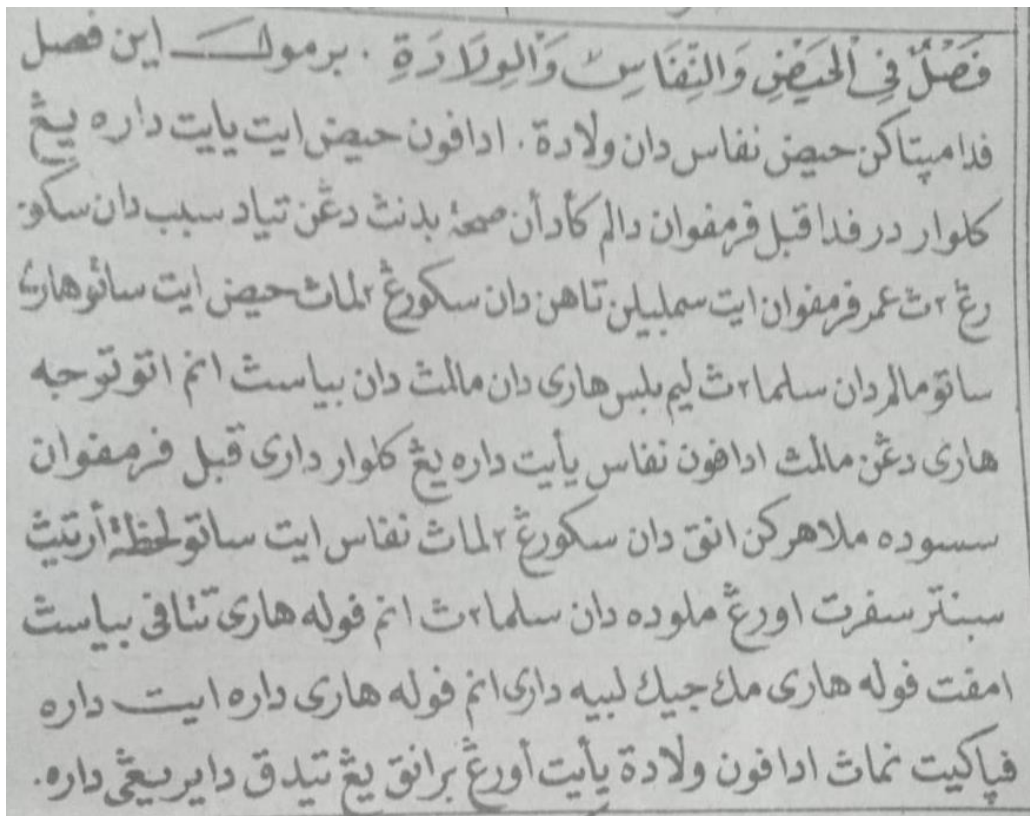 فَصْلٌ فِي الْحَيْضِ وَالنِّفَاسِ وَالْوِلَادَةِ . برمولـــ اين فصل
فدا مپتاكن حيض نفاس دان ولادة . ادافون حيض ايت يايت داره يڠ
كلوار درفدا قبل فرمفوان دالم كأدأن صحة بدنث دڠن تياد سبب دان سكو
رڠ٢ث عمر فرمفوان ايت سمبيلن تاهن دان سكورڠ٢ لماث حيض ايت ساتو هاري
ساتو مالم دان سلما٢ث ليم بلس هاري دان مالمث دان بياسث انم اتو توجه
هاري دڠن مالمث ادافون نفاس يأيت داره يڠ كلوار داري قبل فرمفوان
سسوده ملاهركن انق دان سكورڠ٢ لماث نفاس ايت ساتو لحظة أرتيث
سبنتر سفرت اورڠ ملوده دان سلما٢ث انم فوله هاري تتافي بياسث
امفت فوله هاري مك جيك لبيه داري انم فوله هاري داره ايت داره
فپاكيت نماث ادافون ولادة يأيت أورڠ برانق يڠ تيدق دايريڠي داره.